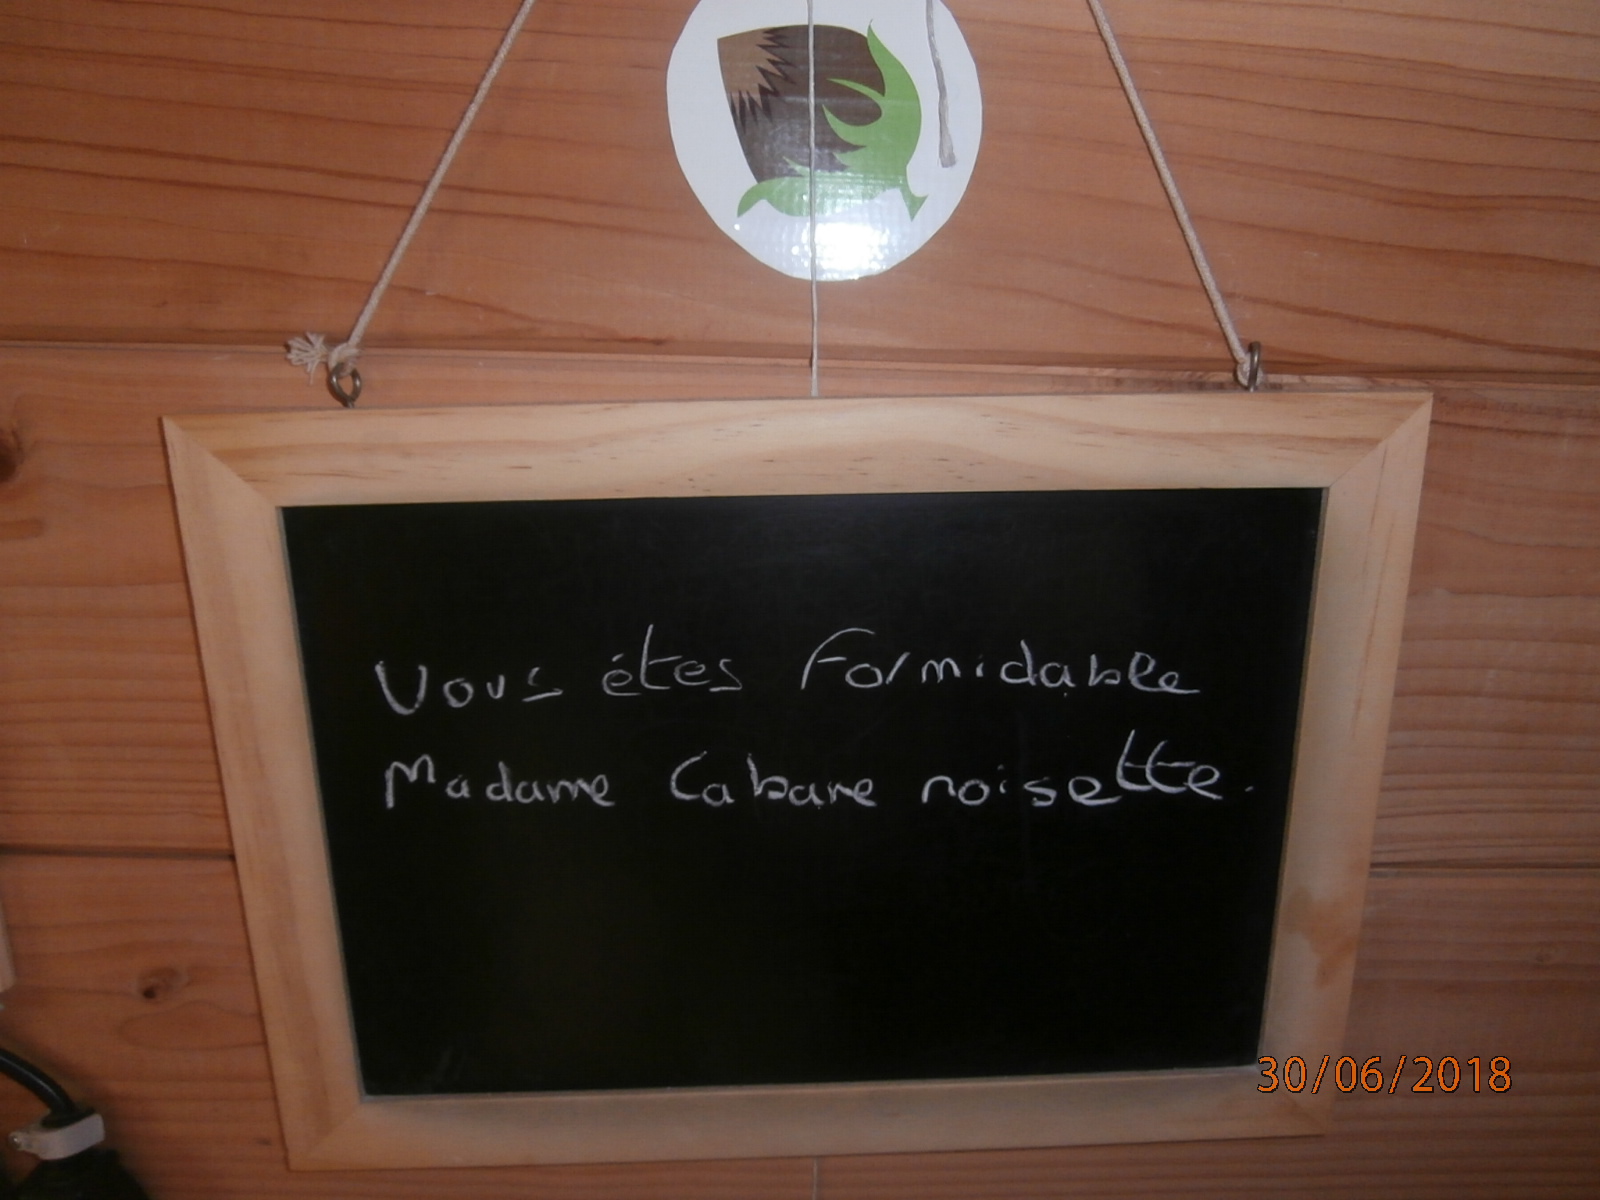 Vous étes formidable
Madame Cabane noisette.
30/06/2018